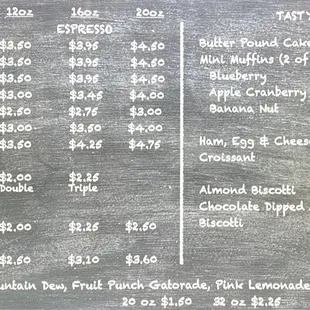 12oz 16oz 20oz
ESPRESSO
$3.50 $3.95 $4.50
$3.50 $3.95 $4.50
$3.50 $3.95 $4.50
$3.00 $3.45 $4.00
$2.50 $2.75 $3.00
$3.00 $3.50 $4.00
$3.50 $4.25 $4.75
$2.00 $2.25
Double Triple
$2.00 $2.25 $2.50
$2.50 $3.10 $3.60
TASTY
Butter Pound Cake
Mini Muffins (2 of
Blueberry
Apple Cranberry
Banana Nut
Ham, Egg & Cheese
Croissant
Almond Biscotti
Chocolate Dipped
Biscotti
untain Dew, Fruit Punch Gatorade, Pink Lemonade
20 oz $1.50 32 oz $2.25